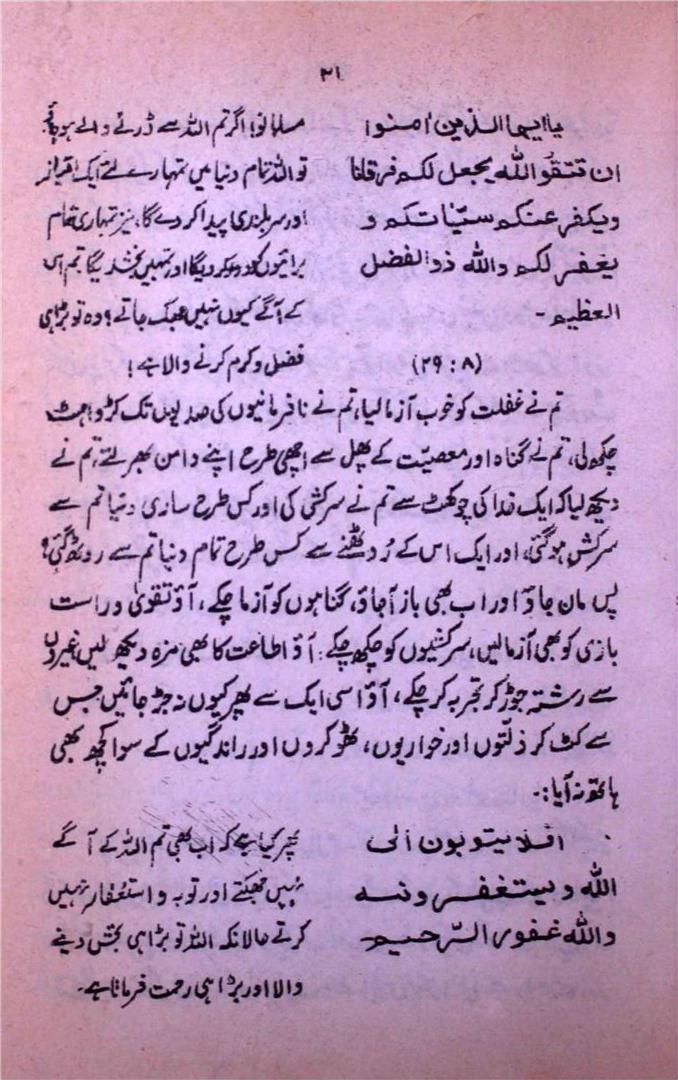 ۳۱
یا ایہا الذین امنوا
ان تتقوا اللہ یجعل لکم فرقانا
ویکفر عنکم سیّاتکم و
یغفر لکم واللہ ذوالفضل
العظیم۔
(۲۹ : ۸)
مسلمانو! اگر تم اللہ سے ڈرنے والے ہو جاؤ
تو اللہ تمام دنیا میں تمہارے لئے ایک امتیاز
اور سربلندی پیدا کر دے گا، نیز تمہاری تمام
برائیوں کو دور کر دیگا اور تمہیں بخشدیگا تم اس
کے آگے کیوں نہیں جھک جاتے؟ وہ تو بڑا ہی
فضل و کرم کرنے والا ہے!
تم نے غفلت کو خوب آزما لیا، تم نے نافرمانیوں کی صدیوں تک کڑواہٹ
چکھ لی، تم نے گناہ اور معصیّت کے پھل سے اچھی طرح اپنے دامن بھر لئے، تم نے
دیکھ لیا کہ ایک خدا کی چوکھٹ سے تم نے سرکشی کی اور کس طرح ساری دنیا تم سے
سرکش ہو گئی، اور ایک اس کے رُوٹھنے سے کس طرح تمام دنیا تم سے روٹھ گئی؟
پس مان جاؤ اور اب بھی باز آجاؤ، گناہوں کو آزما چکے، آؤ تقویٰ و راست
بازی کو بھی آزمالیں، سرکشیوں کو چکھ چکے: آؤ اطاعت کا بھی مزہ دیکھ لیں، غیروں
سے رشتہ جوڑ کر تجربہ کر چکے، آؤ اسی ایک سے پھر کیوں نہ جڑ جائیں جس
سے کٹ کر ذلّتوں اور خواریوں، ٹھوکروں اور راندگیوں کے سوا کچھ بھی
ہاتھ نہ آیا:۔
افلا یتوبون الی
اللہ ویستغفرونہ
واللہ غفور الرّحیم۔
پھر کیا ہے کہ اب بھی تم اللہ کے آگے
نہیں جھکتے اور توبہ و استغفار نہیں
کرتے حالانکہ اللہ تو بڑا ہی بخش دینے
والا اور بڑا ہی رحمت فرماتا ہے۔